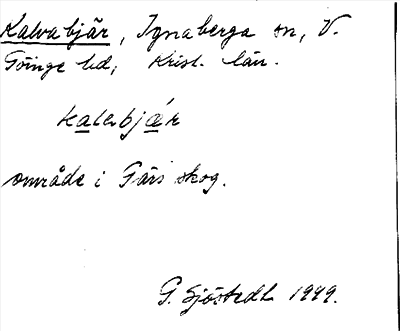 Kalvabjär, Ignaberga sn, V.
Göinge hd, Krist. län.
kalebjær
område i Färs skog.
G. Sjöstedt 1949.